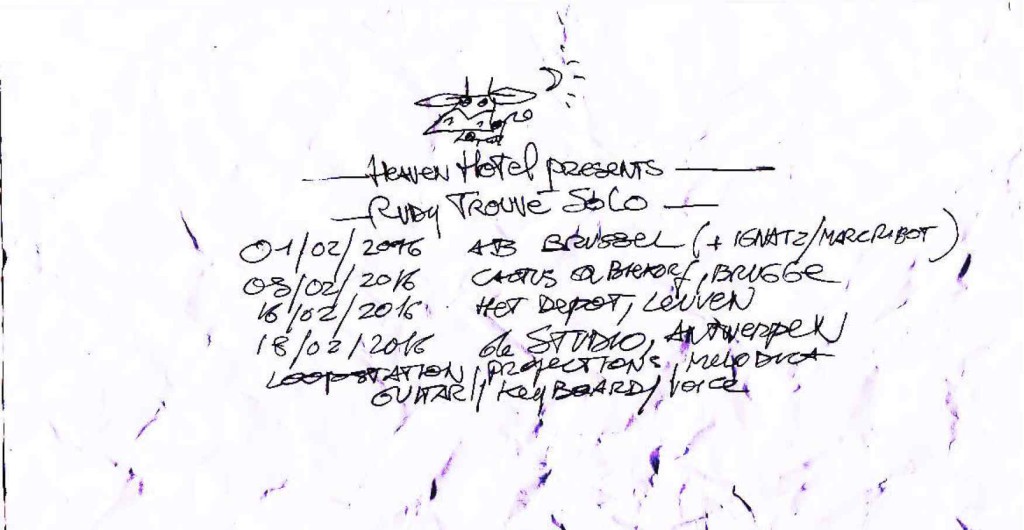 Heaven Hotel presents
Rudy Trouvé Solo
01/02/2016 AB BRUSSEL (+ IGNATZ/MARC RIBOT)
03/02/2016 CACTUS @ BIEKORF, BRUGGE
16/02/2016 HET DEPOT, LEUVEN
18/02/2016 de STUDIO, ANTWERPEN
LOOPSTATION/PROJECTIONS/MELODICA
GUITAR//KEYBOARD/VOICE